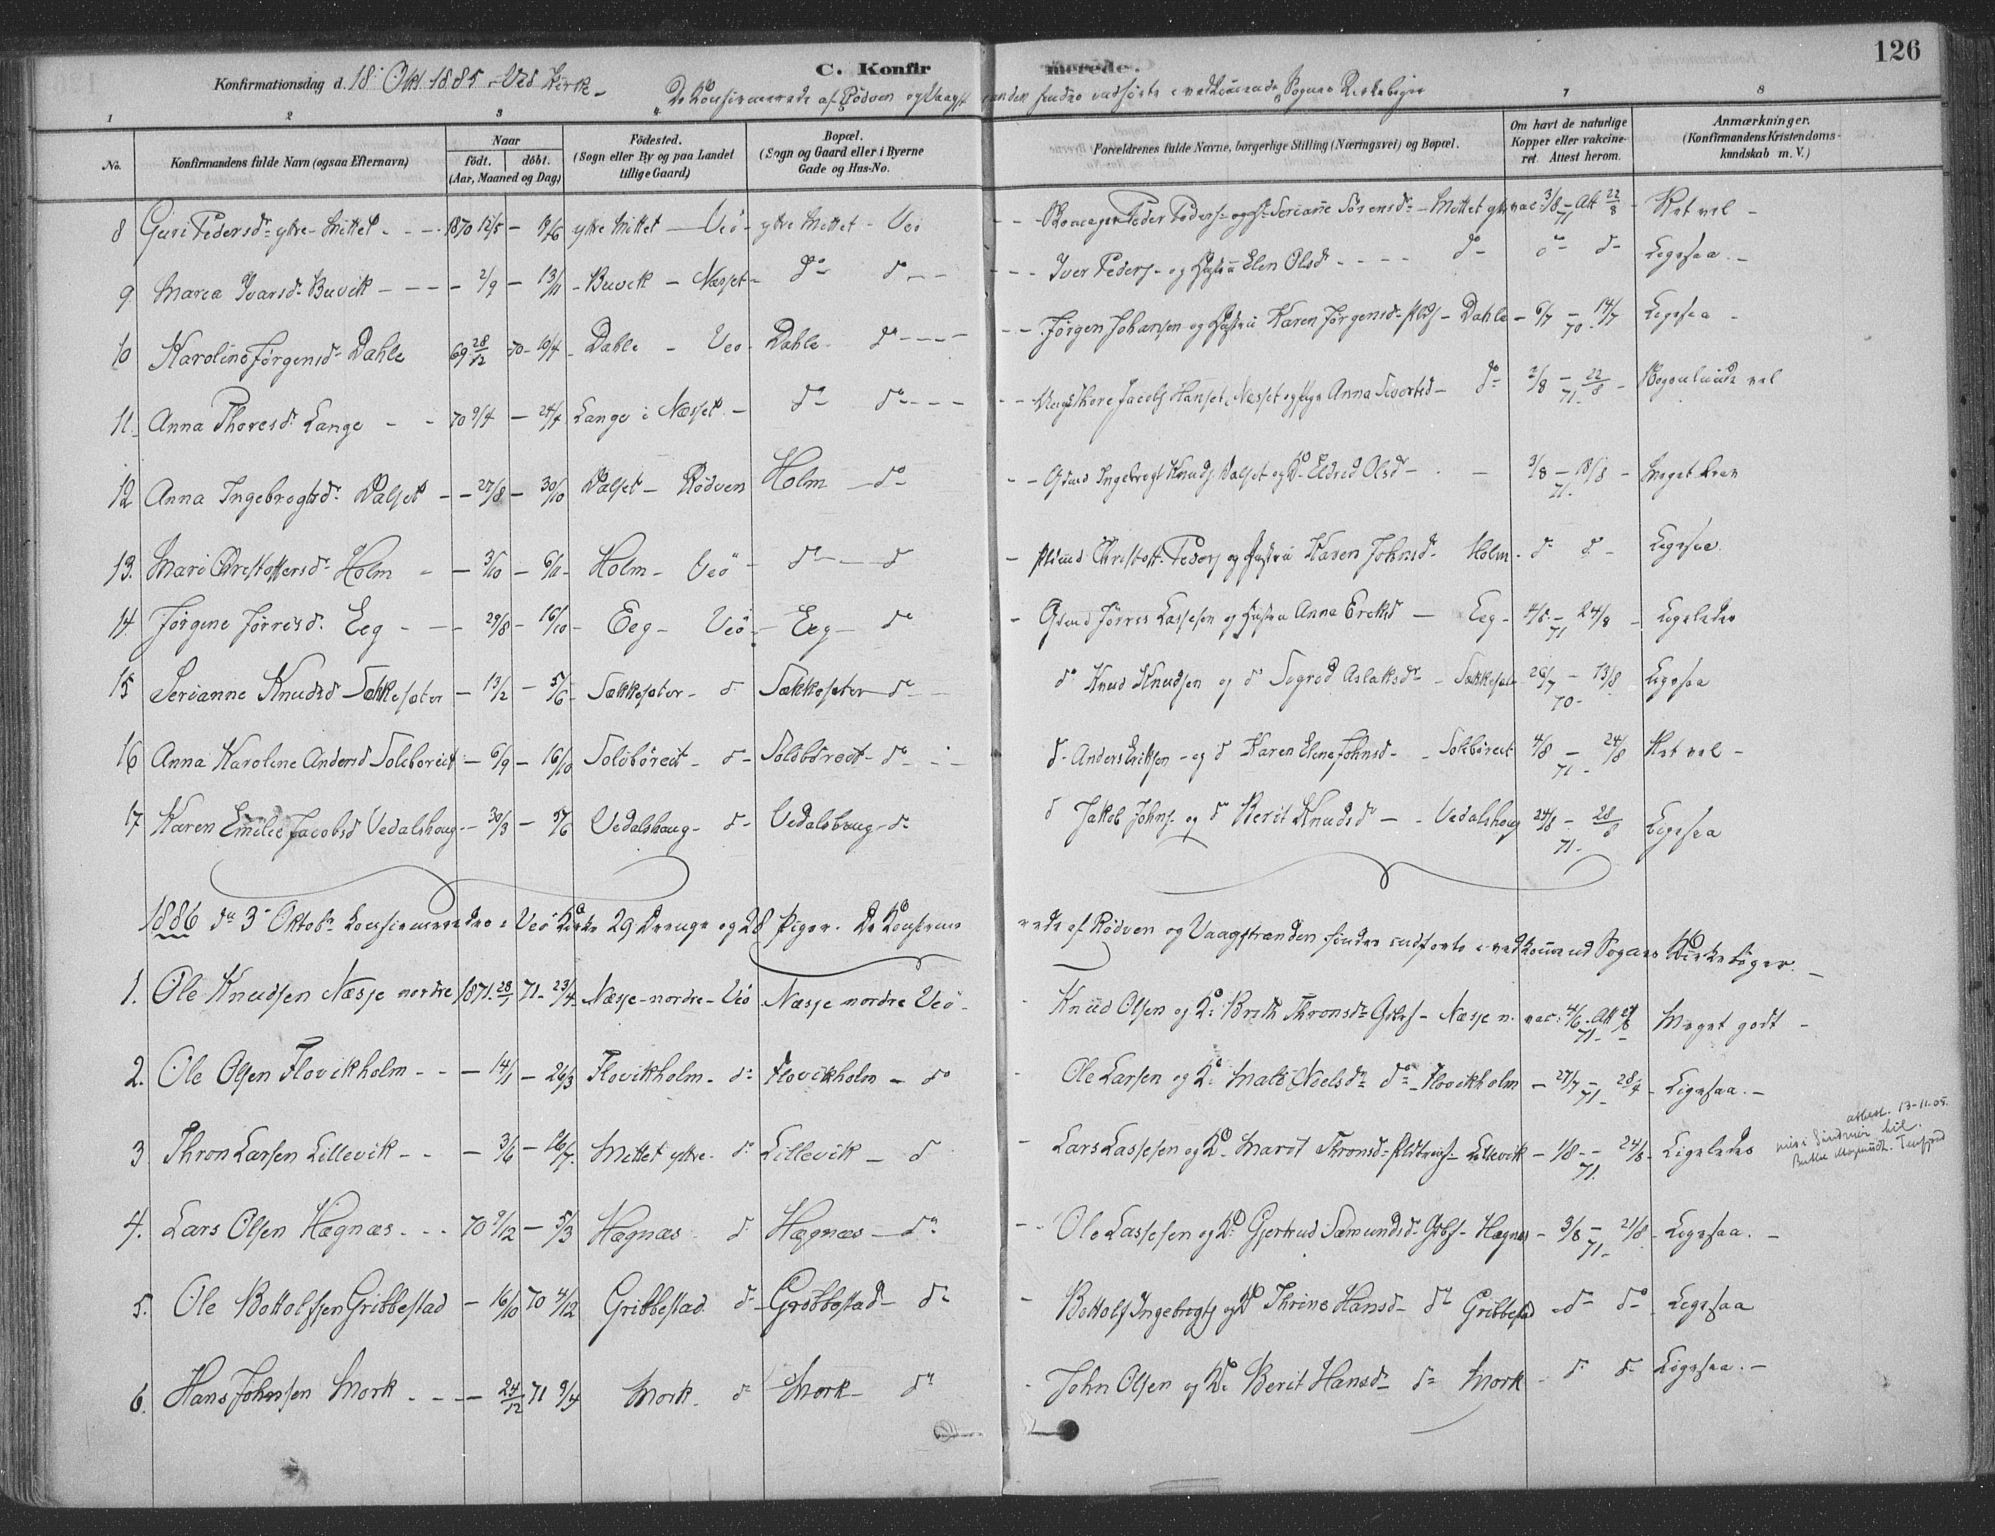 126
C. Konfirmerede.
Konfirmationsdag d. 18 Okt 1885 - Veö Kirke -
De Konfirmerede af Rödven og Vaagstranden findes indförte i vedkommende Sognes Kirkebøger
1 2 3 4 7 8
No. Konfirmandens fulde Navn (ogsaa Efternavn) Naar födt. döbt. (Aar, Maaned og Dag) Födested. (Sogn eller By og paa Landet tillige Gaard) Bopæl. (Sogn og Gaard eller i Byerne Gade og Hus-No. Forældrenes fulde Navne, borgerlige Stilling (Næringsvei) og Bopæl. Om havt de naturlige Kopper eller vakcineret. Attest herom. Anmærkninger. (Konfirmandens Kristendomskundskab m. V.)
8 Guri Pedersdr ytre Mittet - - 1870 12/5 - 9/6 ytre Mittet - Veö - ytre Mittet - Veö - - Peder Peders og Serianne Sörensdr - Mittet ytre vac 3/8 71 - Att 22/8 - Ret vel -
9 Maria Ivarsdr Buvik - - - 2/9 - 13/11 - Buvik - Næsset - do do - - - - Iver Peders - og Hustru Elen Olsd - - - - do - do do - Ligesaa -
10 Karoline Jørgensdr Dahle 69 28/12 70 - 10/4 - Dahle - Veö - Dahle - do - - - - - Jørgen Johansen og Hustru Karen Jørgensdr - Dahle - 6/7 - 70 - 14/7 Ligesaa -
11. Anna Thoresdr Lange - - 70 9/4 - 24/7 Lange i Næsset - do do - - - - - Jacobs Hanset, Næsset og Anna Sivertsd - do 2/8 - 71 22/8 - vel
12 Anna Ingebrogtsdr Dalset - - 27/8 - 30/10 Dalset - Rödven Holm - do - - Gdmd Ingebrogt Knuds. Dalset og K. Eldrid Olsd - - 3/8 - 71 18/8 - Meget
13. Mari Christoffersdr Holm - - 3/10 - 6/11 - Holm - Veö - do - do - Christoff. Peders og Hustru Karen Johnsd - Holm - do do - Ligesaa
14 Jørgine Jørrisd. Eeg - - - 29/8 - 16/10 - Eeg - Veö - Eeg - do - Gdmd Jørres Lassesen og Hustru Anna Eriksd - Eeg - 4/8 - 71 24/8 - Ligeledes
15 Serianne Knudsd Sækkesæter - 13/2 - 5/6 - Sækkesæter - do Sækkesæter - do - do Knud Knudsen og do Sigrid Aslaksdr - Sækkesæt 26/7 - 70 - 13/8 Ligesaa
16 Anna Karoline Andersd Solebøreit - 6/9 - 16/10 Solebøreit - do - Solebøreit - do - - do - Anders Eriksen - og do Karen Elene Johnsd - - Solebøreit 4/8 - 71 - 24/8 Ret vel -
17 Karen Emilie Jacobsd Vedalshaug - 30/3 - 5/6 Vedalshaug - do - Vedalshaug - do - do Jakob Johns. og do Berit Knudsdr - - Vedalshaug 24/8 - 71 - 28/8 Ligesaa
1886 dn 3 Oktobr Konfirmeredes i Veö Kirke 29 Drenge og 28 Piger. De Konfirmerede af Rödven og Vaagstranden findes indførte i vedkommend Sognes Kirkebøger. -
1. Ole Knudsen Næsje nordre 1871. 28/1 71 - 23/4 - Næsje - nordre - Veö Næsje nordre Veö - - Knud Olsen og K. Brith Thronsdr - Næsje n. vac: 4/6 71 - Att Meget godt -
2. Ole Olsen Flovikholm - - - 14/1 - 26/3 Flovikholm - do Flovikholm - do - Ole Larsen og K. Noelsdr do - Flovikholm - 27/7 - 71 - 28/7 - Ligesaa. -
3 Thron Larsen Lillevik - - - 3/6 - 16/7 - Mittet ytre - do Lillevik - do - Lars Lassesen og K. Marit Thronsd - Lillevik - 1/8 - - 71. 24/8 - Ligeledes
attest. 13-11-05.
4. Lars Olsen Hægnæs - - - 70 9/12 - 5/3 Hægnæs - do Hægnæs - do - - Ole Lassesen og K. Gjertrud Sæmundsd - Hægnes - 3/8 - 71 - 21/8 - Ligesaa. -
5. Ole Bottolfsen Gribbestad - 16/10 70 4/12 Gribbestad do - Gribbestad - do - - Bottolf Ingebrogts og K. Thrine Hansd - do Gribbestad - do do - Ligesaa
6. Hans Johnsen Mork - - - - 24/12 71 9/4 Mork do - Mork - do - John Olsen og K. Berit Hansd - do Mork - do do - Ligesaa. -